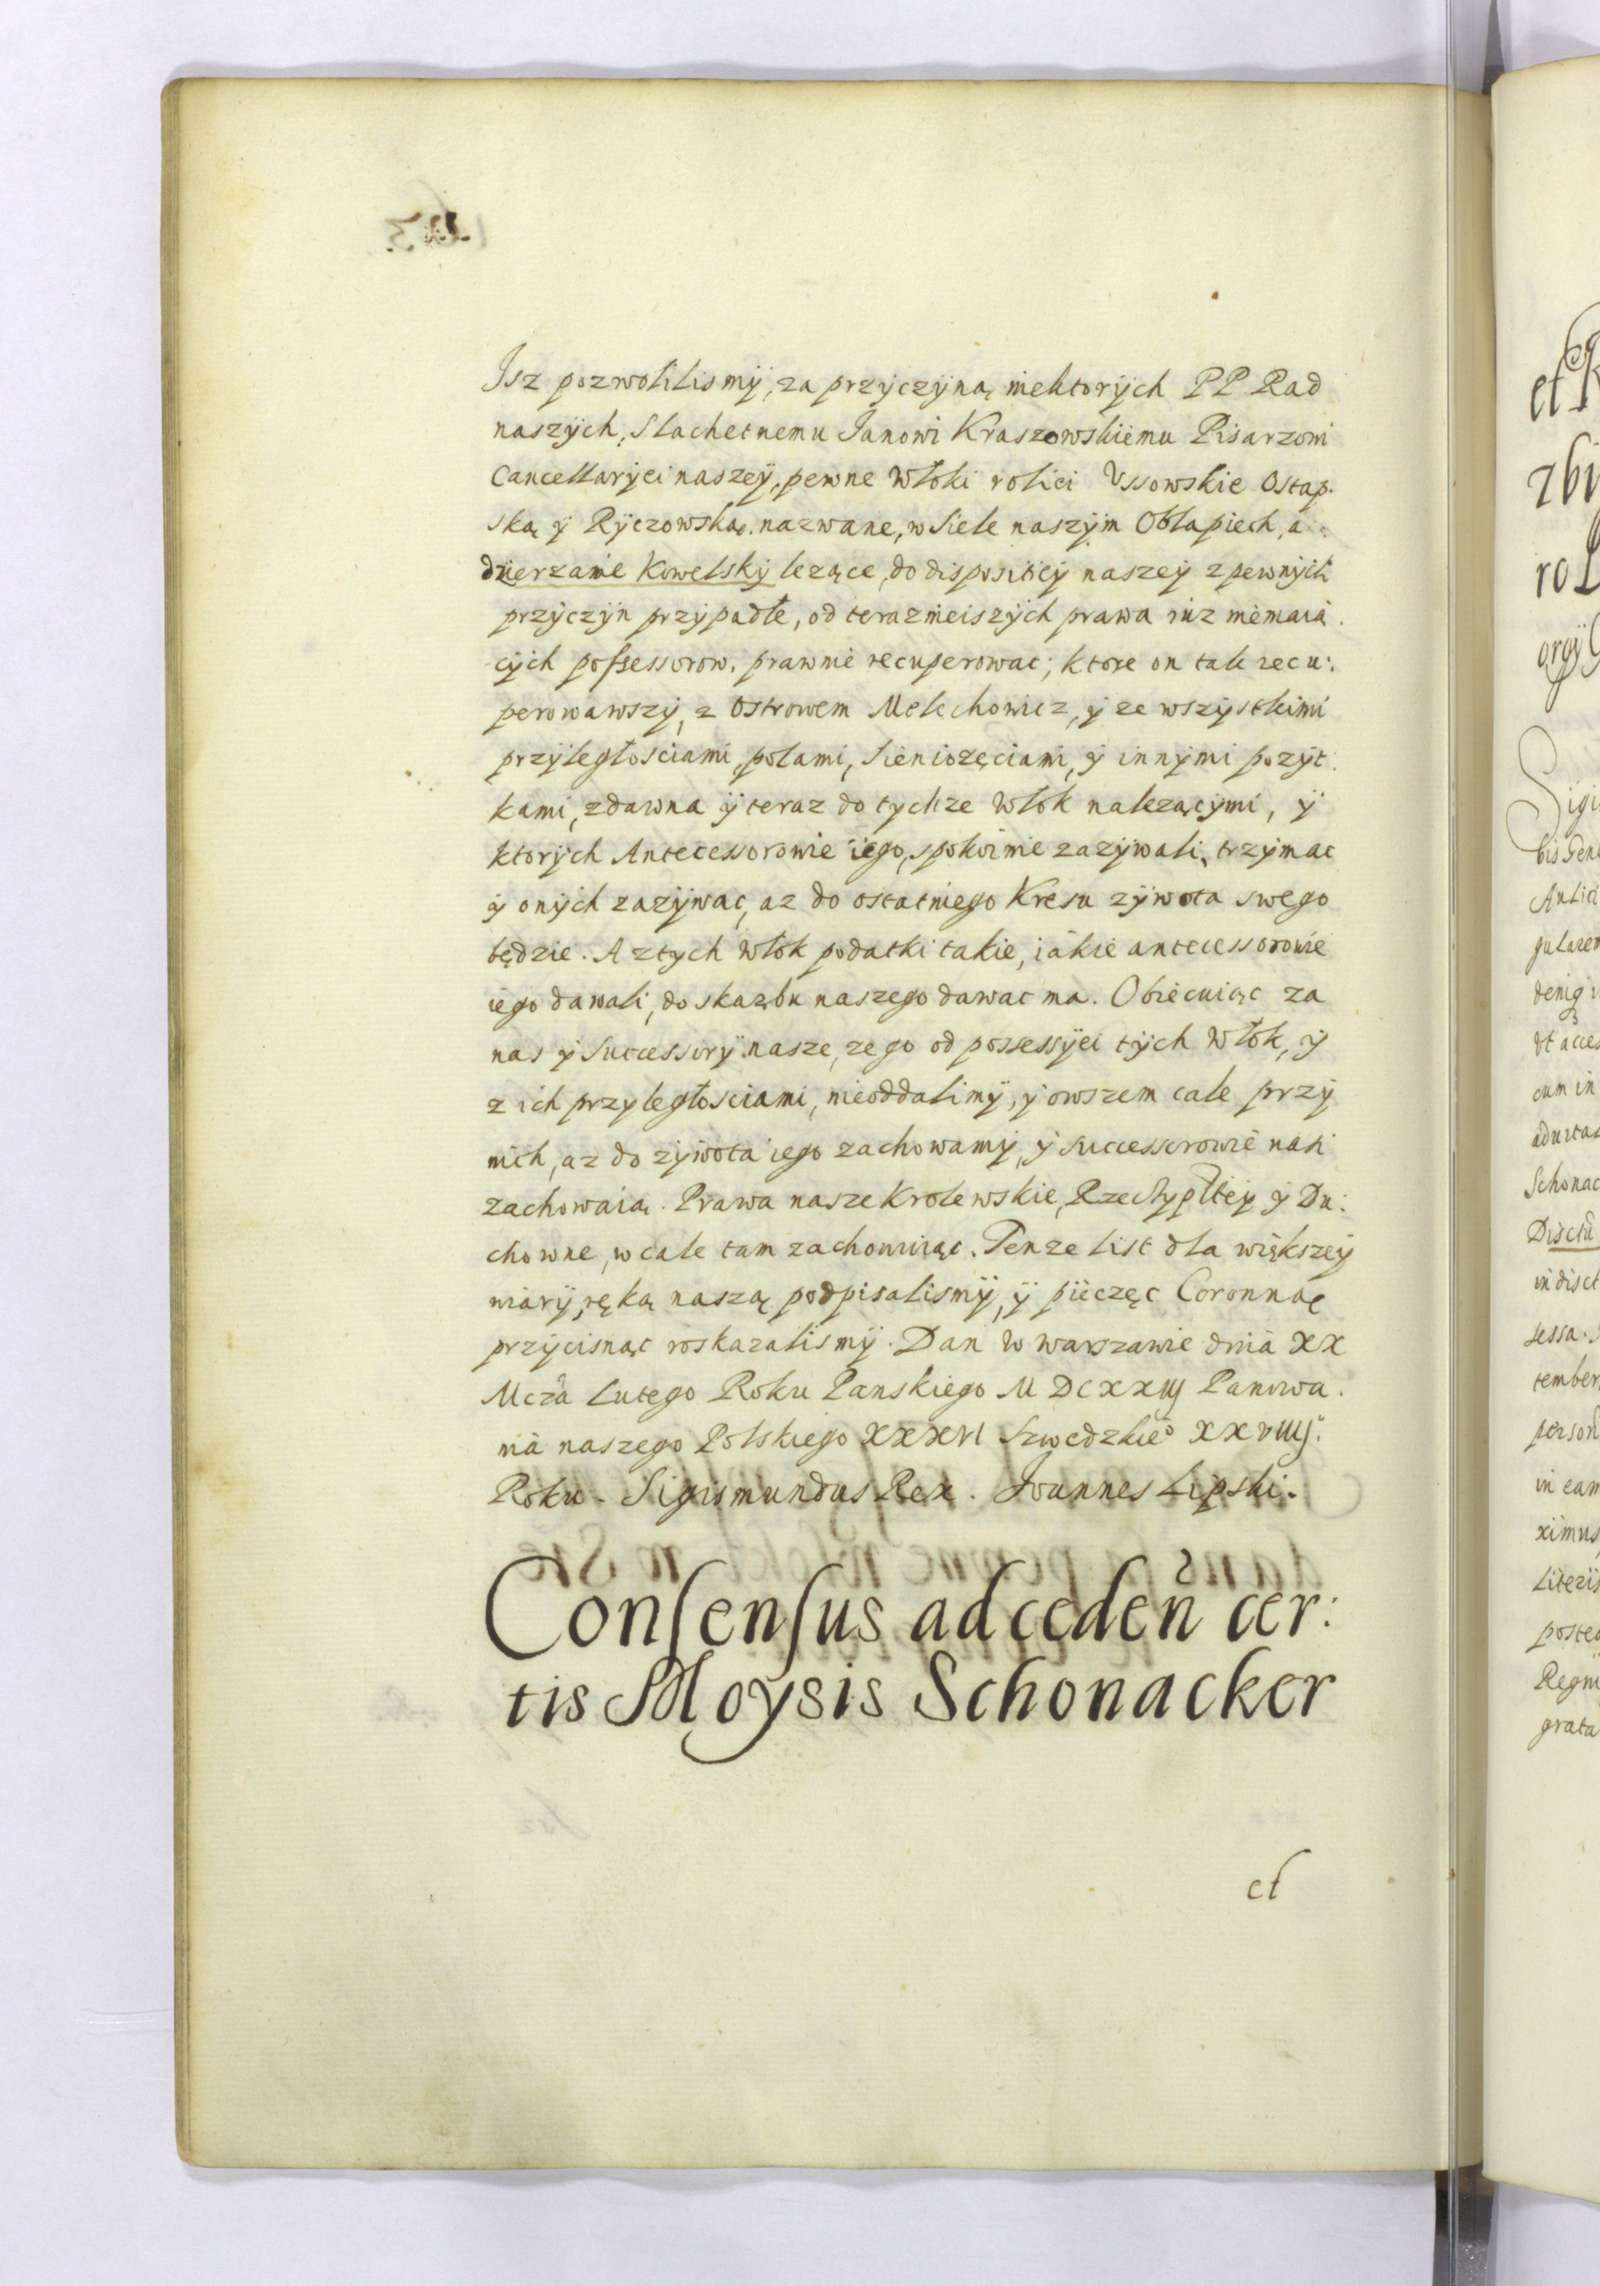 Jsz pozwolilismÿ, za przÿczÿną niektorÿch PP Rad
naszÿch, Slachetnemu Janowi Kraszowskiemu Pisarzowi
Cancellarÿei naszeÿ, pewne Włoki rolici Vssowskie Ostap.
ską ÿ Rÿczowską. nazwane, w Siele naszÿm Obłapiech, a
dzierzanie Kowelskÿ lezące, do dispositieÿ naszeÿ z pewnÿch
przÿczÿn przÿpadłe, od teraznieiszÿch prawa iuz niemaią.
cÿch possessorow, prawnie recuperowac; ktore on tak recu:
perowawszÿ, z Ostrowem Melechowicz, ÿ ze wszÿstkimi
przÿległosciami, polami, Sieniozęciami, ÿ innÿmi pozÿt.
kami, zdawna ÿ teraz do tychze Włok nalezącÿmi, ÿ
ktorÿch Antecessorowie iego, spokoinie zazÿwali, trzÿmac
ÿ onÿch zazÿwac, az do ostatniego Kresu zÿwota swego
będzie. A z tych włok podatki takie, iakie antecessorowie
iego dawali, do skarbu naszego dawac ma. Obiecuiąc za
nas ÿ Successorÿ nasze, ze go od possessÿei tÿch Włok, ÿ
z ich przyległosciami, nieoddalimÿ, ÿ owszem cale przÿ
nich, az do zÿwota iego zachowamÿ, ÿ Successorowie nasi
zachowaią. Prawa nasze Krolewskie, Rzeczÿpltej ÿ Du:
chowne, w cale tam zachowuiąc. Tenze list dla większeÿ
wiarÿ, ręką naszą podpisalismÿ, ÿ pieczęc Coronną
przÿcisnąc roskazalismÿ. Dan w warszawie dnia XX
Mcza Lutego Roku Panskiego M DCXXIIJ Panowa.
nia naszego Polskiego XXXVI Szwedzkie° XXVIIIJ.
Roku. Sigismundus Rex. Joannes Lipski.
Consensus ad ceden cer:
tis Moysis Schonacker
et